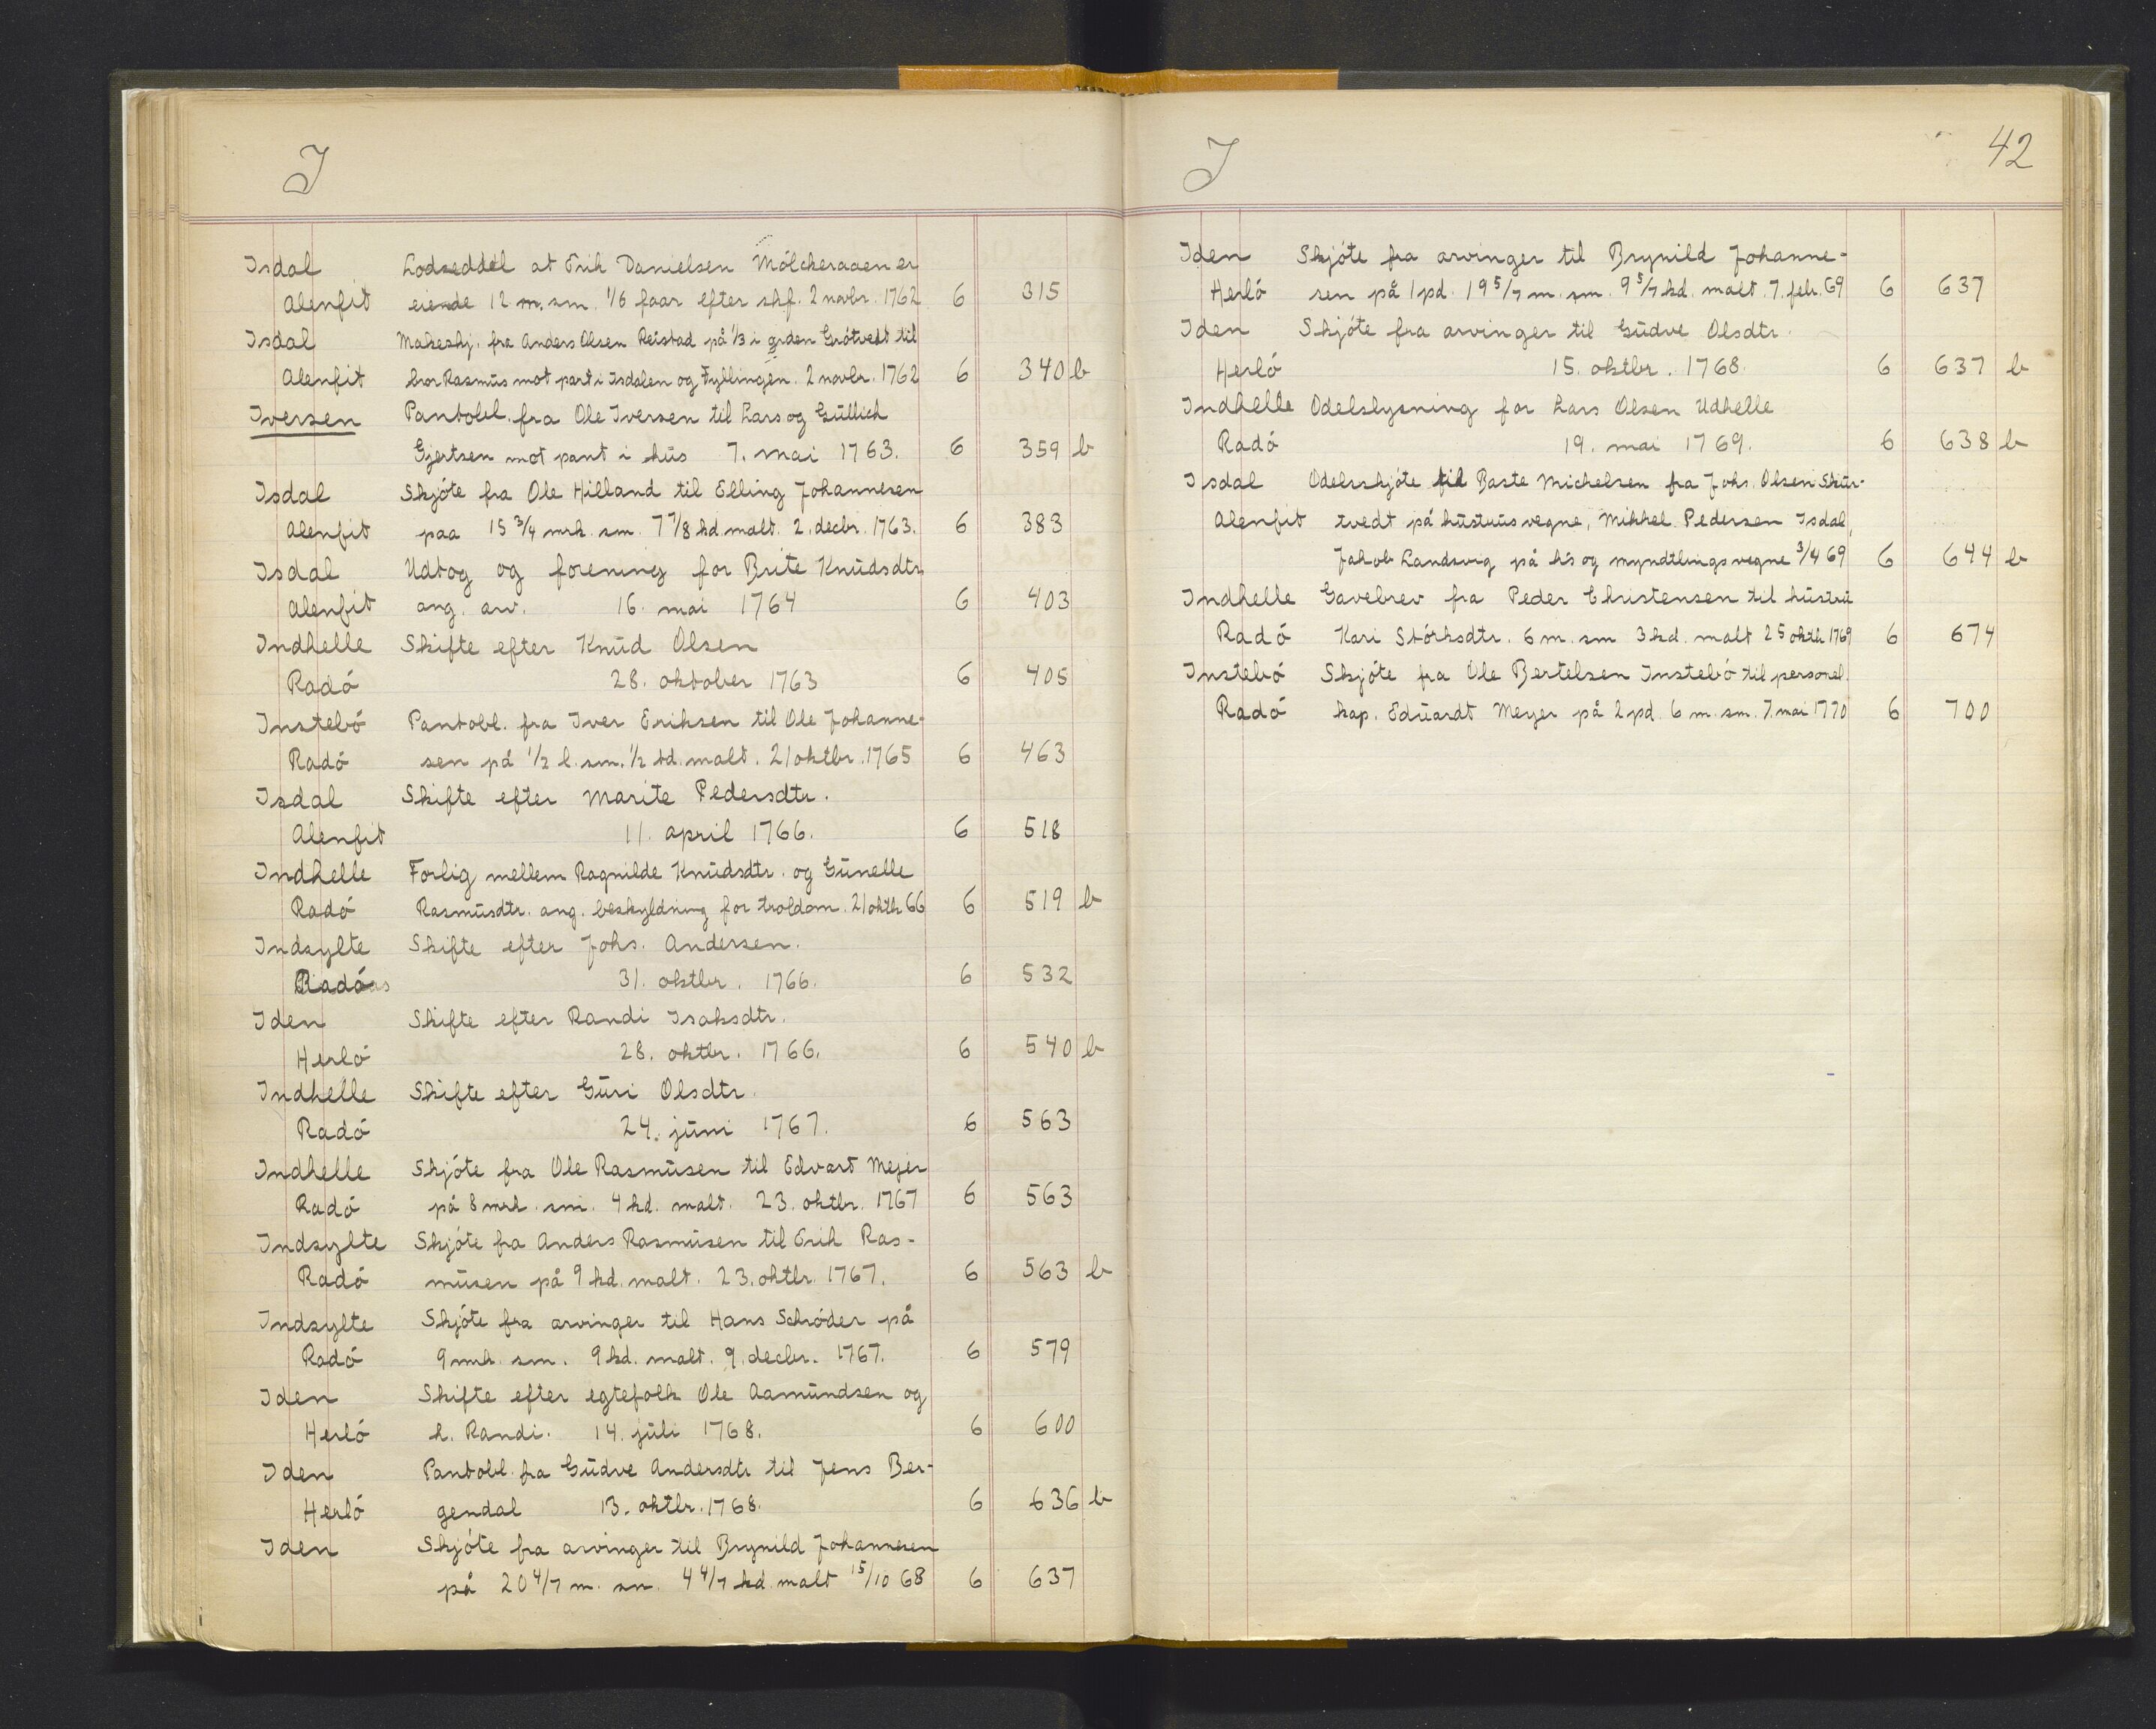 I
Isdal Lodseddel at Erik Danielsen Mölckeraaen er
Alenfit eiende 12 m. sm. 1/6 faar efter skf. 2 novbr. 1762 6 315
Isdal Makeskj. fra Anders Olsen Reistad på 1/3 i grden Grótvedt til
Alenfit bror Rasmus mot part i Isdalen og Fyllingen. 2 novbr. 1762 6 340 b
Iversen Pantobl. fra Ole Iversen til Lars og Güllich
Gjertsen mot pant i hüs 7. mai 1763. 6 359 b
Isdal Skjóte fra Ole Hilland til Elling Johannesen
Alenfit paa 15 3/4 mrk. sm. 7 7/8 kd. malt. 2. decbr. 1763. 6 383
Isdal Udtog og forening for Brite Knüdsdtr
Alenfit ang. arv. 16. mai 1764 6 403
Indhelle Skifte efter Knüd Olsen
Radó 28. oktober 1763 6 405
Instebó Pantobl. fra Iver Eriksen til Ole Johanne-
Radó sen på 1/2 l. sm. 1/2 td. malt. 21 oktbr. 1765 6 463
Isdal Skifte efter Marite Pedersdtr.
Alenfit 11. april 1766. 6 518
Indhelle Forlig mellem Ragnilde Knüdsdtr. og Günelle
Radó Rasmüsdtr. ang. beskyldning for troldom. 21 oktbr 66 6 519 b
Indsylte Skifte efter Johs. Andersen.
Radó 31. oktbr. 1766. 6 532
Iden Skifte efter Randi Isaksdtr.
Herló 28. oktbr. 1766. 6 540 b
Indhelle Skifte efter Güri Olsdtr.
Radó 24. jüni 1767. 6 563
Indhelle Skjóte fra Ole Rasmüsen til Edvart Mejer
Radó på 8 mrk. sm. 4 kd. malt. 23. oktbr. 1767 6 563
Indsylte Skjóte fra Anders Rasmüsen til Erik Ras-
Radó müsen på 9 kd. malt. 23. oktbr. 1767. 6 563 b
Indsylte Skjóte fra arvinger til Hans Schróder på
Radó 9 mrk. sm. 9 kd. malt. 9. decbr. 1767. 6 579
Iden Skifte efter egtefolk Ole Aamündsen og
Herló h. Randi. 14. jüli 1768. 6 600
Iden Pantobl. fra Güdve Andersdtr til Jens Ber-
Herló gendal 13. oktbr. 1768. 6 636 b
Iden Skjóte fra arvinger til Brynild Johannesen
på 20 4/7 m. sm. 4 4/7 kd. malt 15/10 68 6 637
I 42
Iden Skjóte fra arvinger til Brynild Johanne-
Herló sen på 1 pd. 19 5/7 m. sm. 9 5/7 kd. malt. 7. febr. 69 6 637
Iden Skjóte fra arvinger til Güdve Olsdtr.
Herló 15. oktbr. 1768. 6 637 b
Indhelle Odelslysning for Lars Olsen Udhelle
Radó 19. mai 1769. 6 638 b
Isdal Odelsskjóte til Baste Michelsen fra Johs. Olsen Skür-
Alenfit tvedt på hüstrüs vegne, Mikkel Pedersen Isdal,
Jakob Landsvig på hs og myndtlings vegne 3/4 69 6 644 b
Indhelle Gavebrev fra Peder Christensen til hüstrü
Radó Kari Stórksdtr. 6 m. sm 3 kd. malt 25 oktbr 1769 6 674
Instebó Skjóte fra Ole Bertelsen Instebó til personel.
Radó kap. Edüardt Meyer på 2 pd. 6 m. sm. 7. mai 1770 6 700